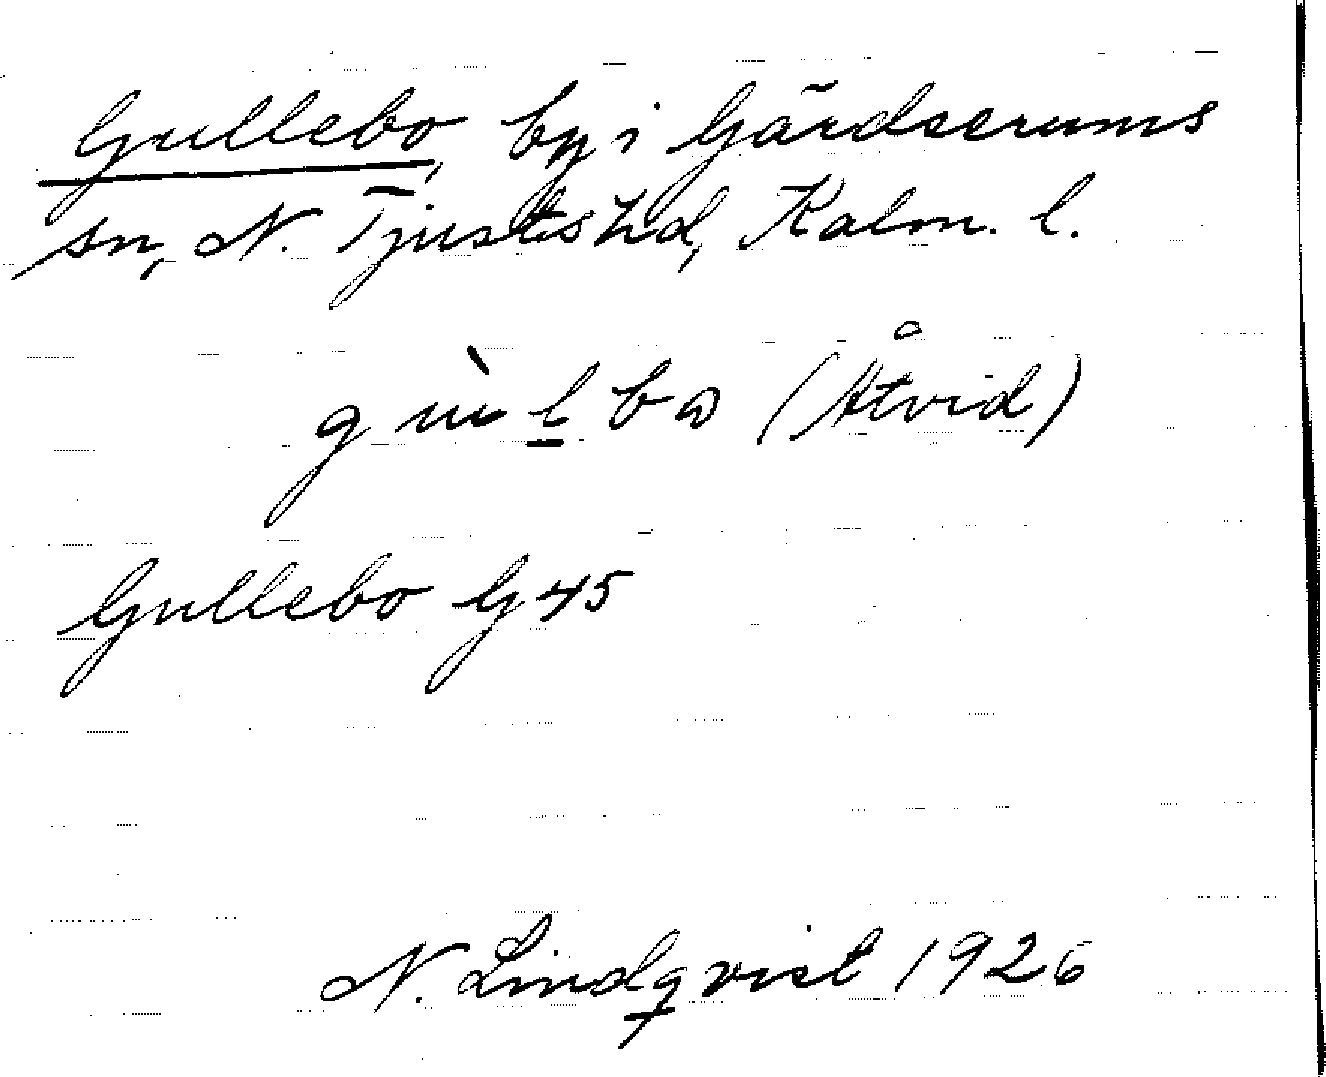 Gullebo, by i Gärdserums
sn, N. Tjusts hd, Kalm. l.
gùlbo (Åtvid)
Gullebo G 45
N. Lindqvist 1926